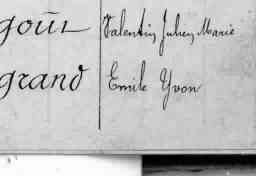 goüi Valentin Julien Marie
grand Emile Yvon